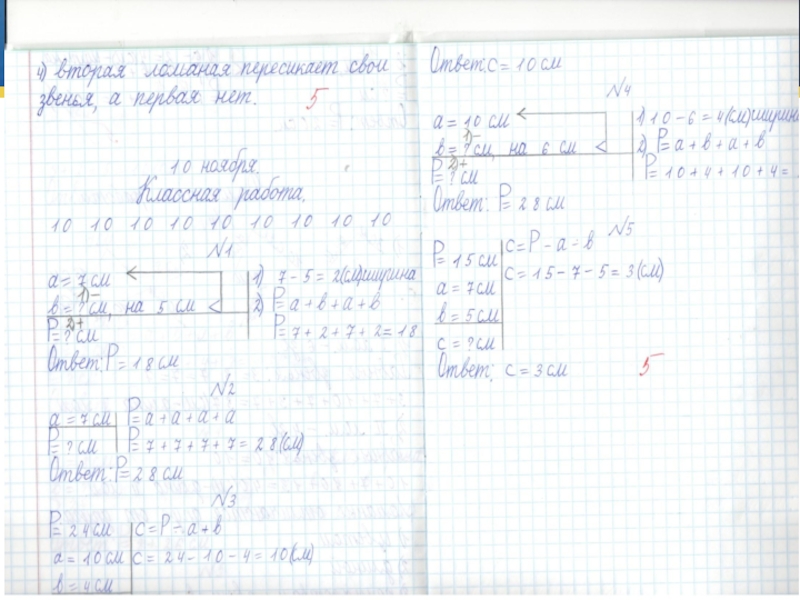 4) вторая ломаная пересикает свои
звенья, а первая нет.
5
10 ноября.
Классная работа.
10 10 10 10 10 10 10 10 10
№1
а = 7 см
1)−
в = ? см, на 5 см <
2)+
P = ? см
1) 7 − 5 = 2(см)ширина
2) P = а + в + а + в
P = 7 + 2 + 7 + 2 = 18
Ответ: P = 18 см
№2
а = 7 см
P = ? см
P = а + а + а + а
P = 7 + 7 + 7 + 7 = 28(см)
Ответ: P = 28 см
№3
P = 24 см
а = 10 см
в = 4 см
с = P − а + в
с = 24 − 10 − 4 = 10(см)
Ответ: с = 10 см
№4
а = 10 см
1)−
в = ? см, на 6 см <
2)+
P = ? см
1) 10 − 6 = 4(см)ширина
2) P = а + в + а + в
P = 10 + 4 + 10 + 4 =
Ответ: P = 28 см
№5
P = 15 см
а = 7 см
в = 5 см
с = ? см
с = P − а − в
с = 15 − 7 − 5 = 3(см)
Ответ: с = 3 см
5